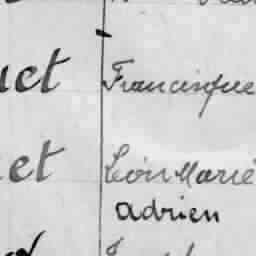 uet Francisque
et Léon Marie
adrien